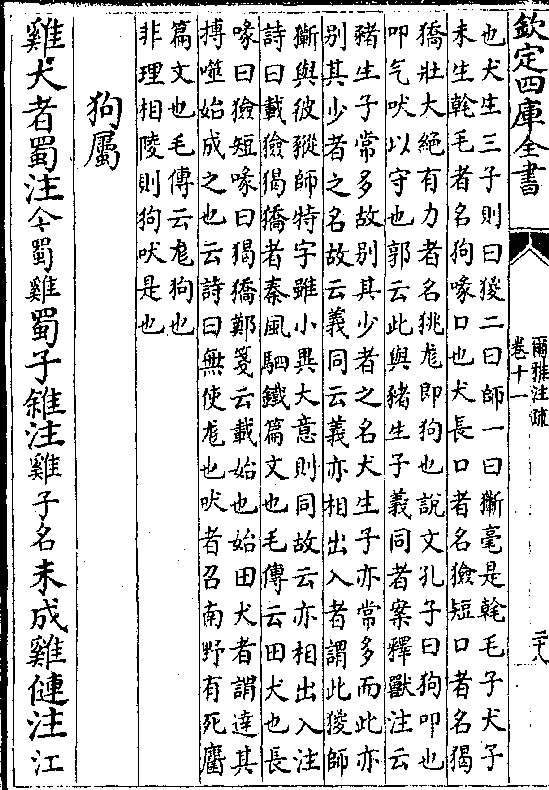 欽定四庫全書
爾雅注疏
卷十一
二十八
也犬生三子則曰猣二曰師一曰獑毫是毨毛子犬子
未生毨毛者名狗喙口也犬長口者名獫短口者名猲
獢壯大絶有力者名狣尨即狗也說文孔子曰狗叩也
叩气吠以守也郭云此與豬生子義同者案釋獸注云
豬生子常多故别其少者之名犬生子亦常多而此亦
别其少者之名故云義同云義亦相出入者謂此猣師
獑與彼豵師特字雖小異大意則同故云亦相出入注
詩曰載獫猲獢者秦風駟鐵篇文也毛傳云田犬也長
喙曰獫短喙曰猲獢鄭箋云載始也始田犬者謂達其
搏噬始成之也云詩曰無使尨也吠者召南野有死麕
篇文也毛傳云尨狗也
非理相陵則狗吠是也
狗屬
雞大者蜀注今蜀雞蜀子雓注雞子名未成雞僆注江